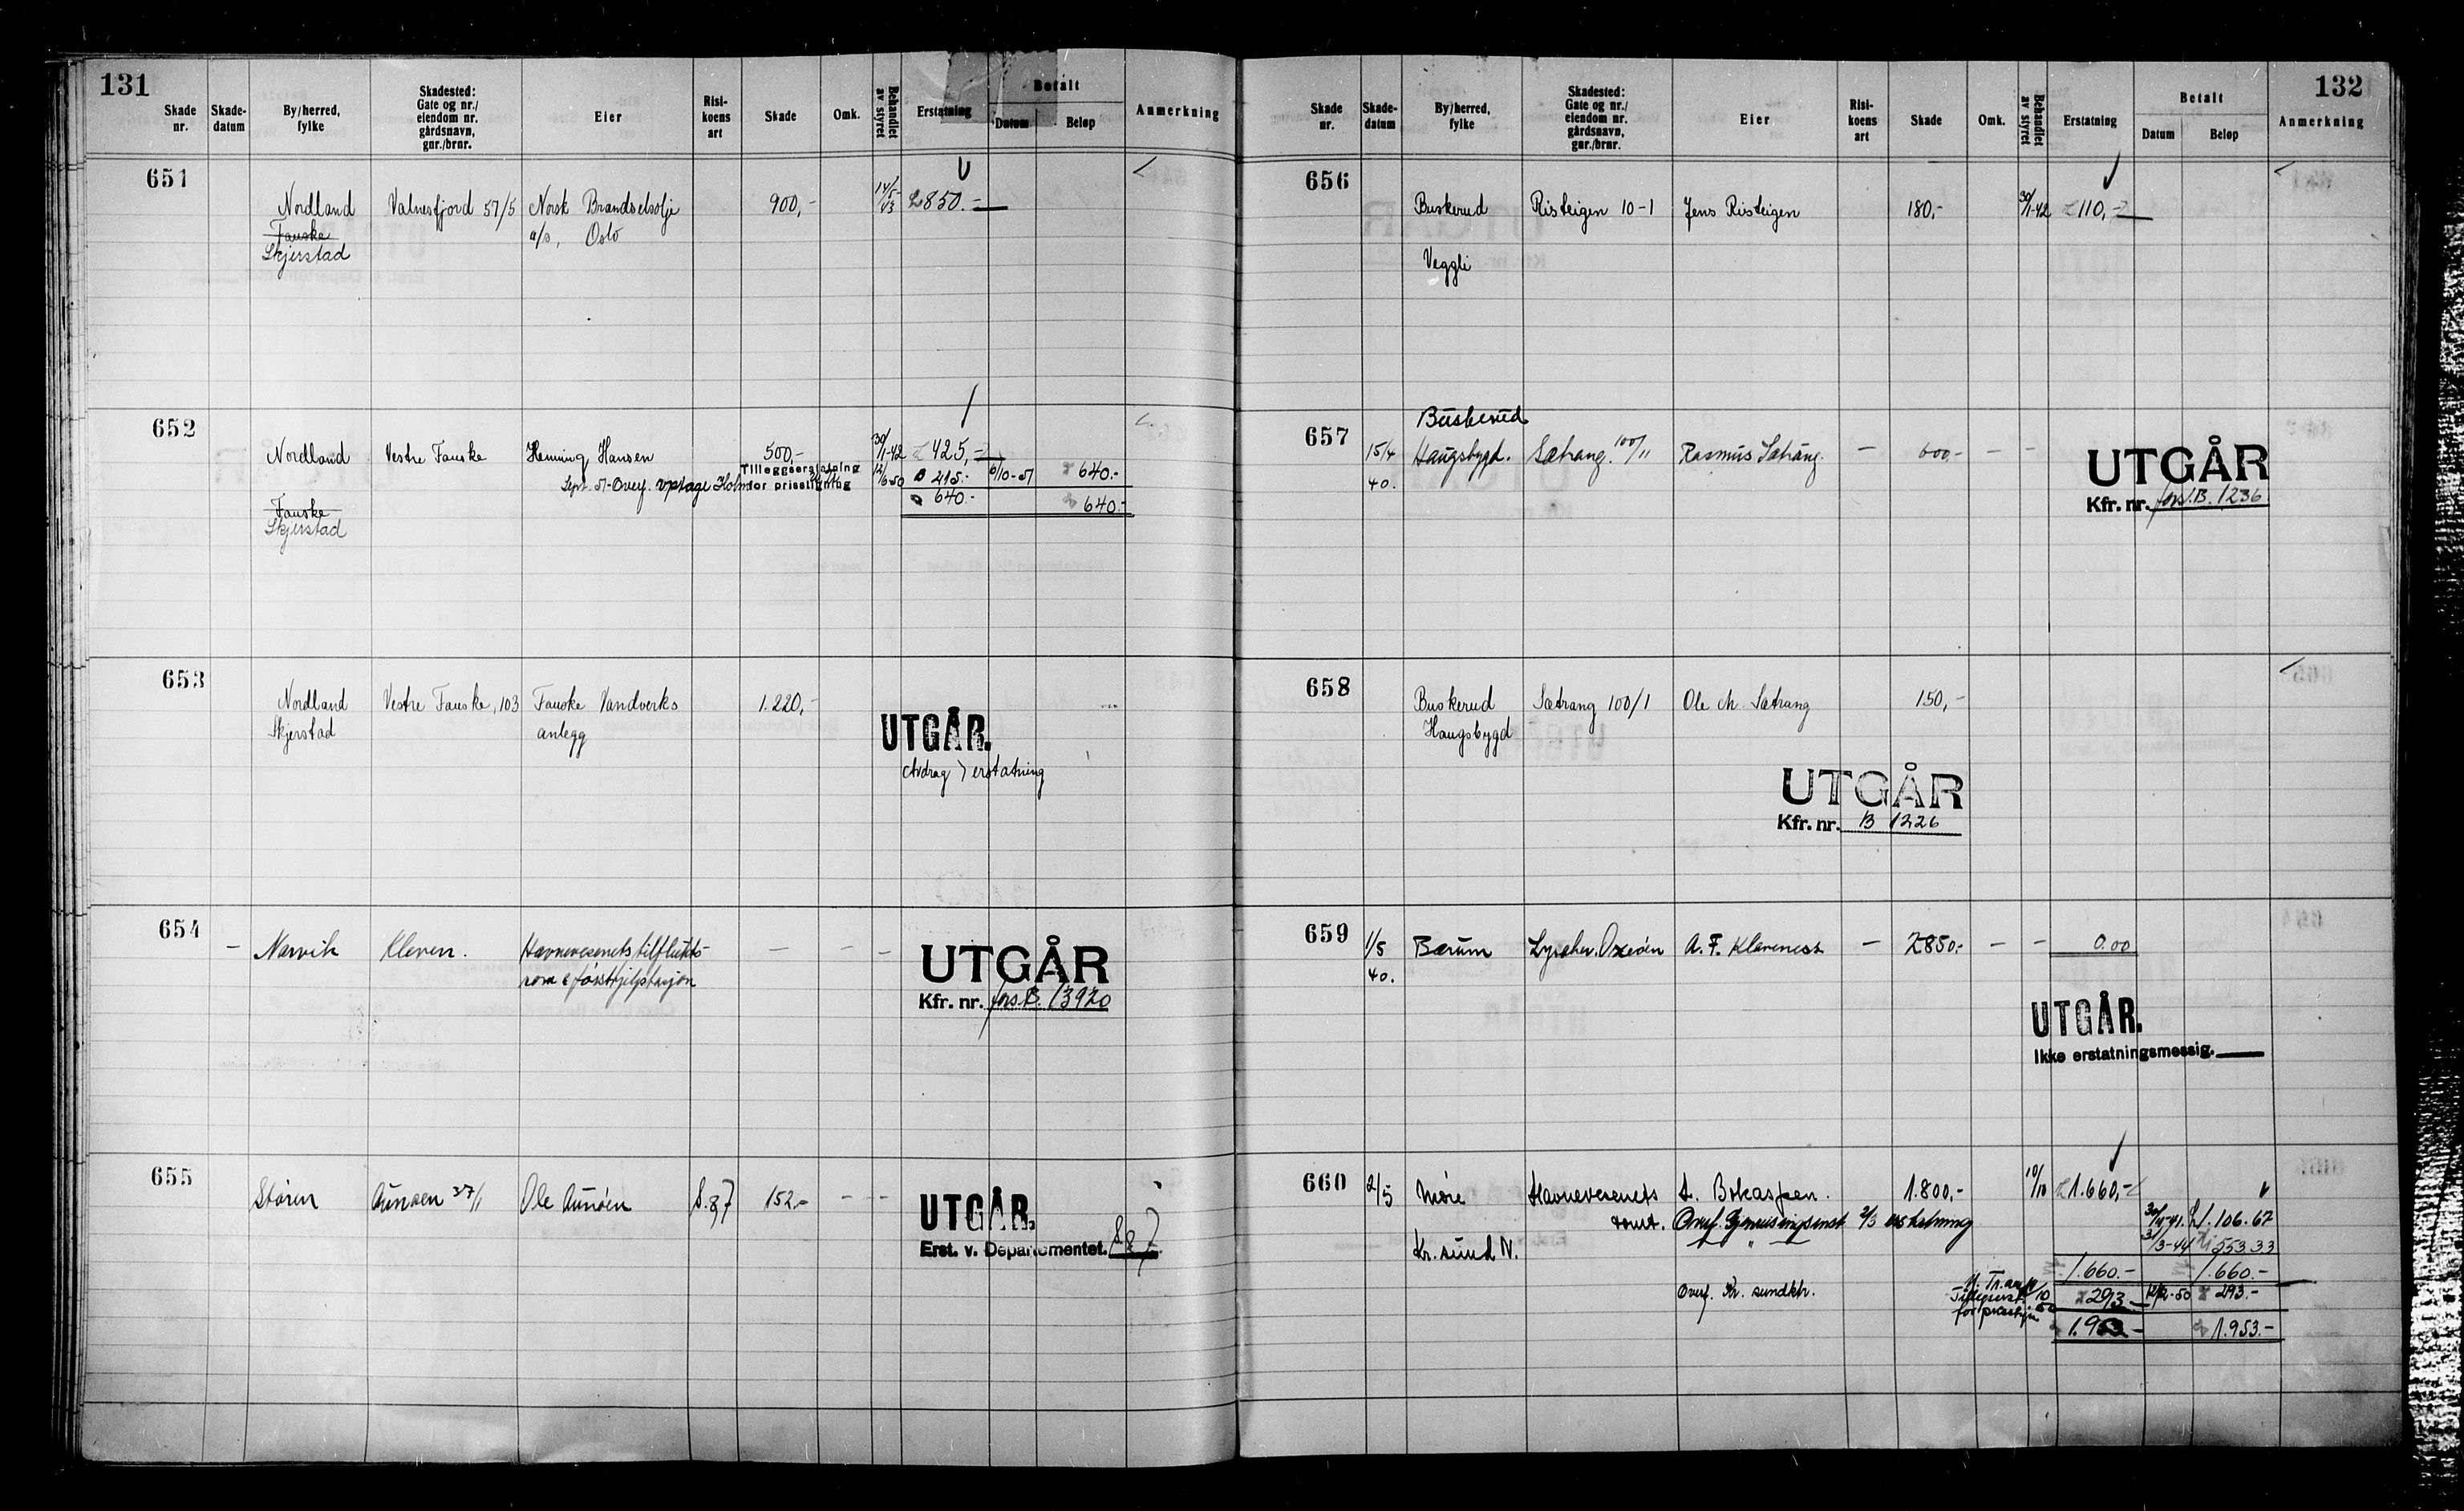 131
Skade nr.
Skade-datum
By/herred, fylke
Skadested: Gate og nr./ eiendom nr. gårdsnavn, gnr./brnr.
Eier
Risi-koens art
Skade
Omk.
Behandlet av styret
Erstatning
Betalt
Datum
Beløp
Anmerkning
651
Nordland Valnesfjord 57/5 Norsk Brændselsolje 900,- 14/5-43 850.-
Fauske a/s, Oslo
Skjerstad
652
Nordland Vestre Fauske Henning Hansen 500,- 30/1-42 425,-
Tilleggserstatning
for prisstigning
Sept. 51-Overf. 12/6-50 215.- 6/10-51 640.-
640.- 640.-
Fauske
Skjerstad
653
Nordland Vestre Fauske, 103 Fauske Vandverks 1.220,-
Skjerstad anlegg
UTGÅR.
Avdrag > erstatning
654
- Narvik Kleven. Havnevesenets tilflukts- - - -
rom & førstehjelpstasjon
UTGÅR
Kfr. nr. fors.B. 13920
655
Støren Aunøen 37/1 Ole Aunøen S.87 152.- - -
UTGÅR.
Erst. v. Departementet. S 87.
132
Skade nr.
Skade-datum
By/herred, fylke
Skadested: Gate og nr./ eiendom nr. gårdsnavn, gnr./brnr.
Eier
Risi-koens art
Skade
Omk.
Behandlet av styret
Erstatning
Betalt
Datum
Beløp
Anmerkning
656
Buskerud Risteigen 10-1 Jens Risteigen 180,- 30/1-42 110,-
Veggli
657
Buskerud
15/4 Haugsbygd. Sætrang. 100/11 Rasmus Sætrang. - 600,- - -
40.
UTGÅR
Kfr. nr. fors.B. 1236
658
Buskerud Sætrang 100/1 Ole M. Sætrang 150,-
Haugsbygd
UTGÅR
Kfr. nr. B 1226
659
1/5 Bærum Lysaker. Oxeøen A. F. Klaveness - 2850.- - - 0.00
40.
UTGÅR.
Ikke erstatningsmessig.
660
2/5 Møre Havnevesenets 1.800,- 10/10 1.660,-
tomt. Overf. 2/3 erstatning
30/4-41. 1.106.67
Kr. sund N. 31/3-44 553.33
1.660.- 1.660.-
Overf. Kr. sundktr.
293.- 12/2-50 293.-
1.953.- 1.953.-